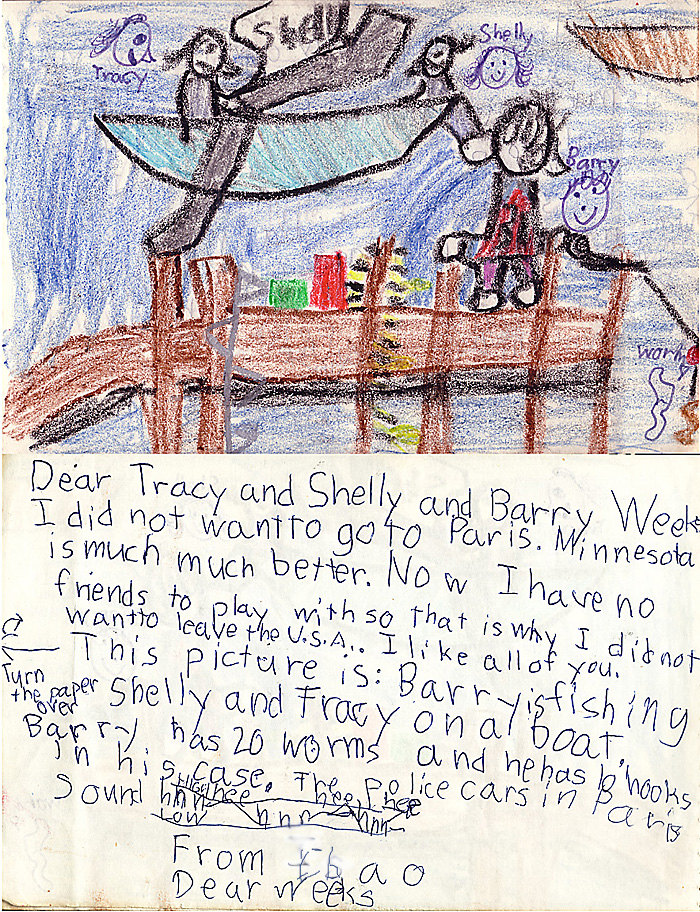 Tracy
Shell
Shelly
Barry
Worm
Dear Tracy and Shelly and Barry Week
I did not want to go to Paris. Minnesota
is much much better. Now I have no
friends to play with so that is why I did not
want to leave the U.S.A.. I like all of you.
Turn
the paper
over
This picture is: Barry is fishing
Shelly and Tracy on a boat.
Barry has 20 worms and he has 10 hooks
in his case. The police cars in Paris
Sound hnn hee hnn hee hnn hee
Low
From
Dear Weeks